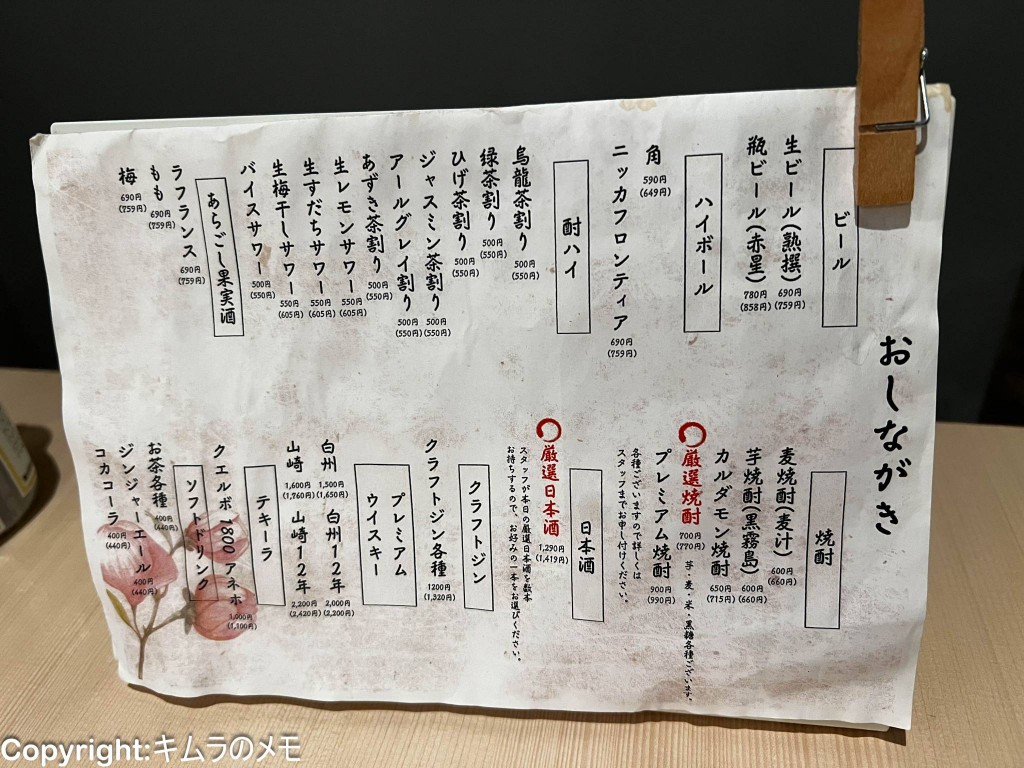 おしながき
ビール
生ビール(熟撰) 690円 (759円)
瓶ビール(赤星) 780円 (858円)
ハイボール
角 590円 (649円)
ニッカフロンティア 690円 (759円)
酎ハイ
烏龍茶割り 500円 (550円)
緑茶割り 500円 (550円)
ひげ茶割り 500円 (550円)
ジャスミン茶割り 500円 (550円)
アールグレイ割り 500円 (550円)
あずき茶割り 500円 (550円)
生レモンサワー 550円 (605円)
生すだちサワー 550円 (605円)
生梅干しサワー 550円 (605円)
バイスサワー 500円 (550円)
あらごし果実酒
ラフランス 690円 (759円)
もも 690円 (759円)
梅 690円 (759円)
焼酎
麦焼酎(麦汁) 600円 (660円)
芋焼酎(黒霧島) 600円 (660円)
カルダモン焼酎 650円 (715円)
厳選焼酎 700円 (770円) 芋・麦・米・黒糖各種ございます。
プレミアム焼酎 900円 (990円)
各種ございますので詳しくは
スタッフまでお申し付けください。
日本酒
厳選日本酒 1,290円 (1,419円)
スタッフが本日の厳選日本酒を数本
お持ちするので、お好みの一本をお選びください。
クラフトジン
クラフトジン各種 1200円 (1,320円)
プレミアム
ウイスキー
白州 1,500円 (1,650円) 白州12年 2,000円 (2,200円)
山崎 1,600円 (1,760円) 山崎12年 2,200円 (2,420円)
テキーラ
クエルボ1800 アネホ 1,000円 (1,100円)
ソフトドリンク
お茶各種 400円 (440円)
ジンジャーエール 400円 (440円)
コカコーラ 400円 (440円)
Copyright:キムラのメモ